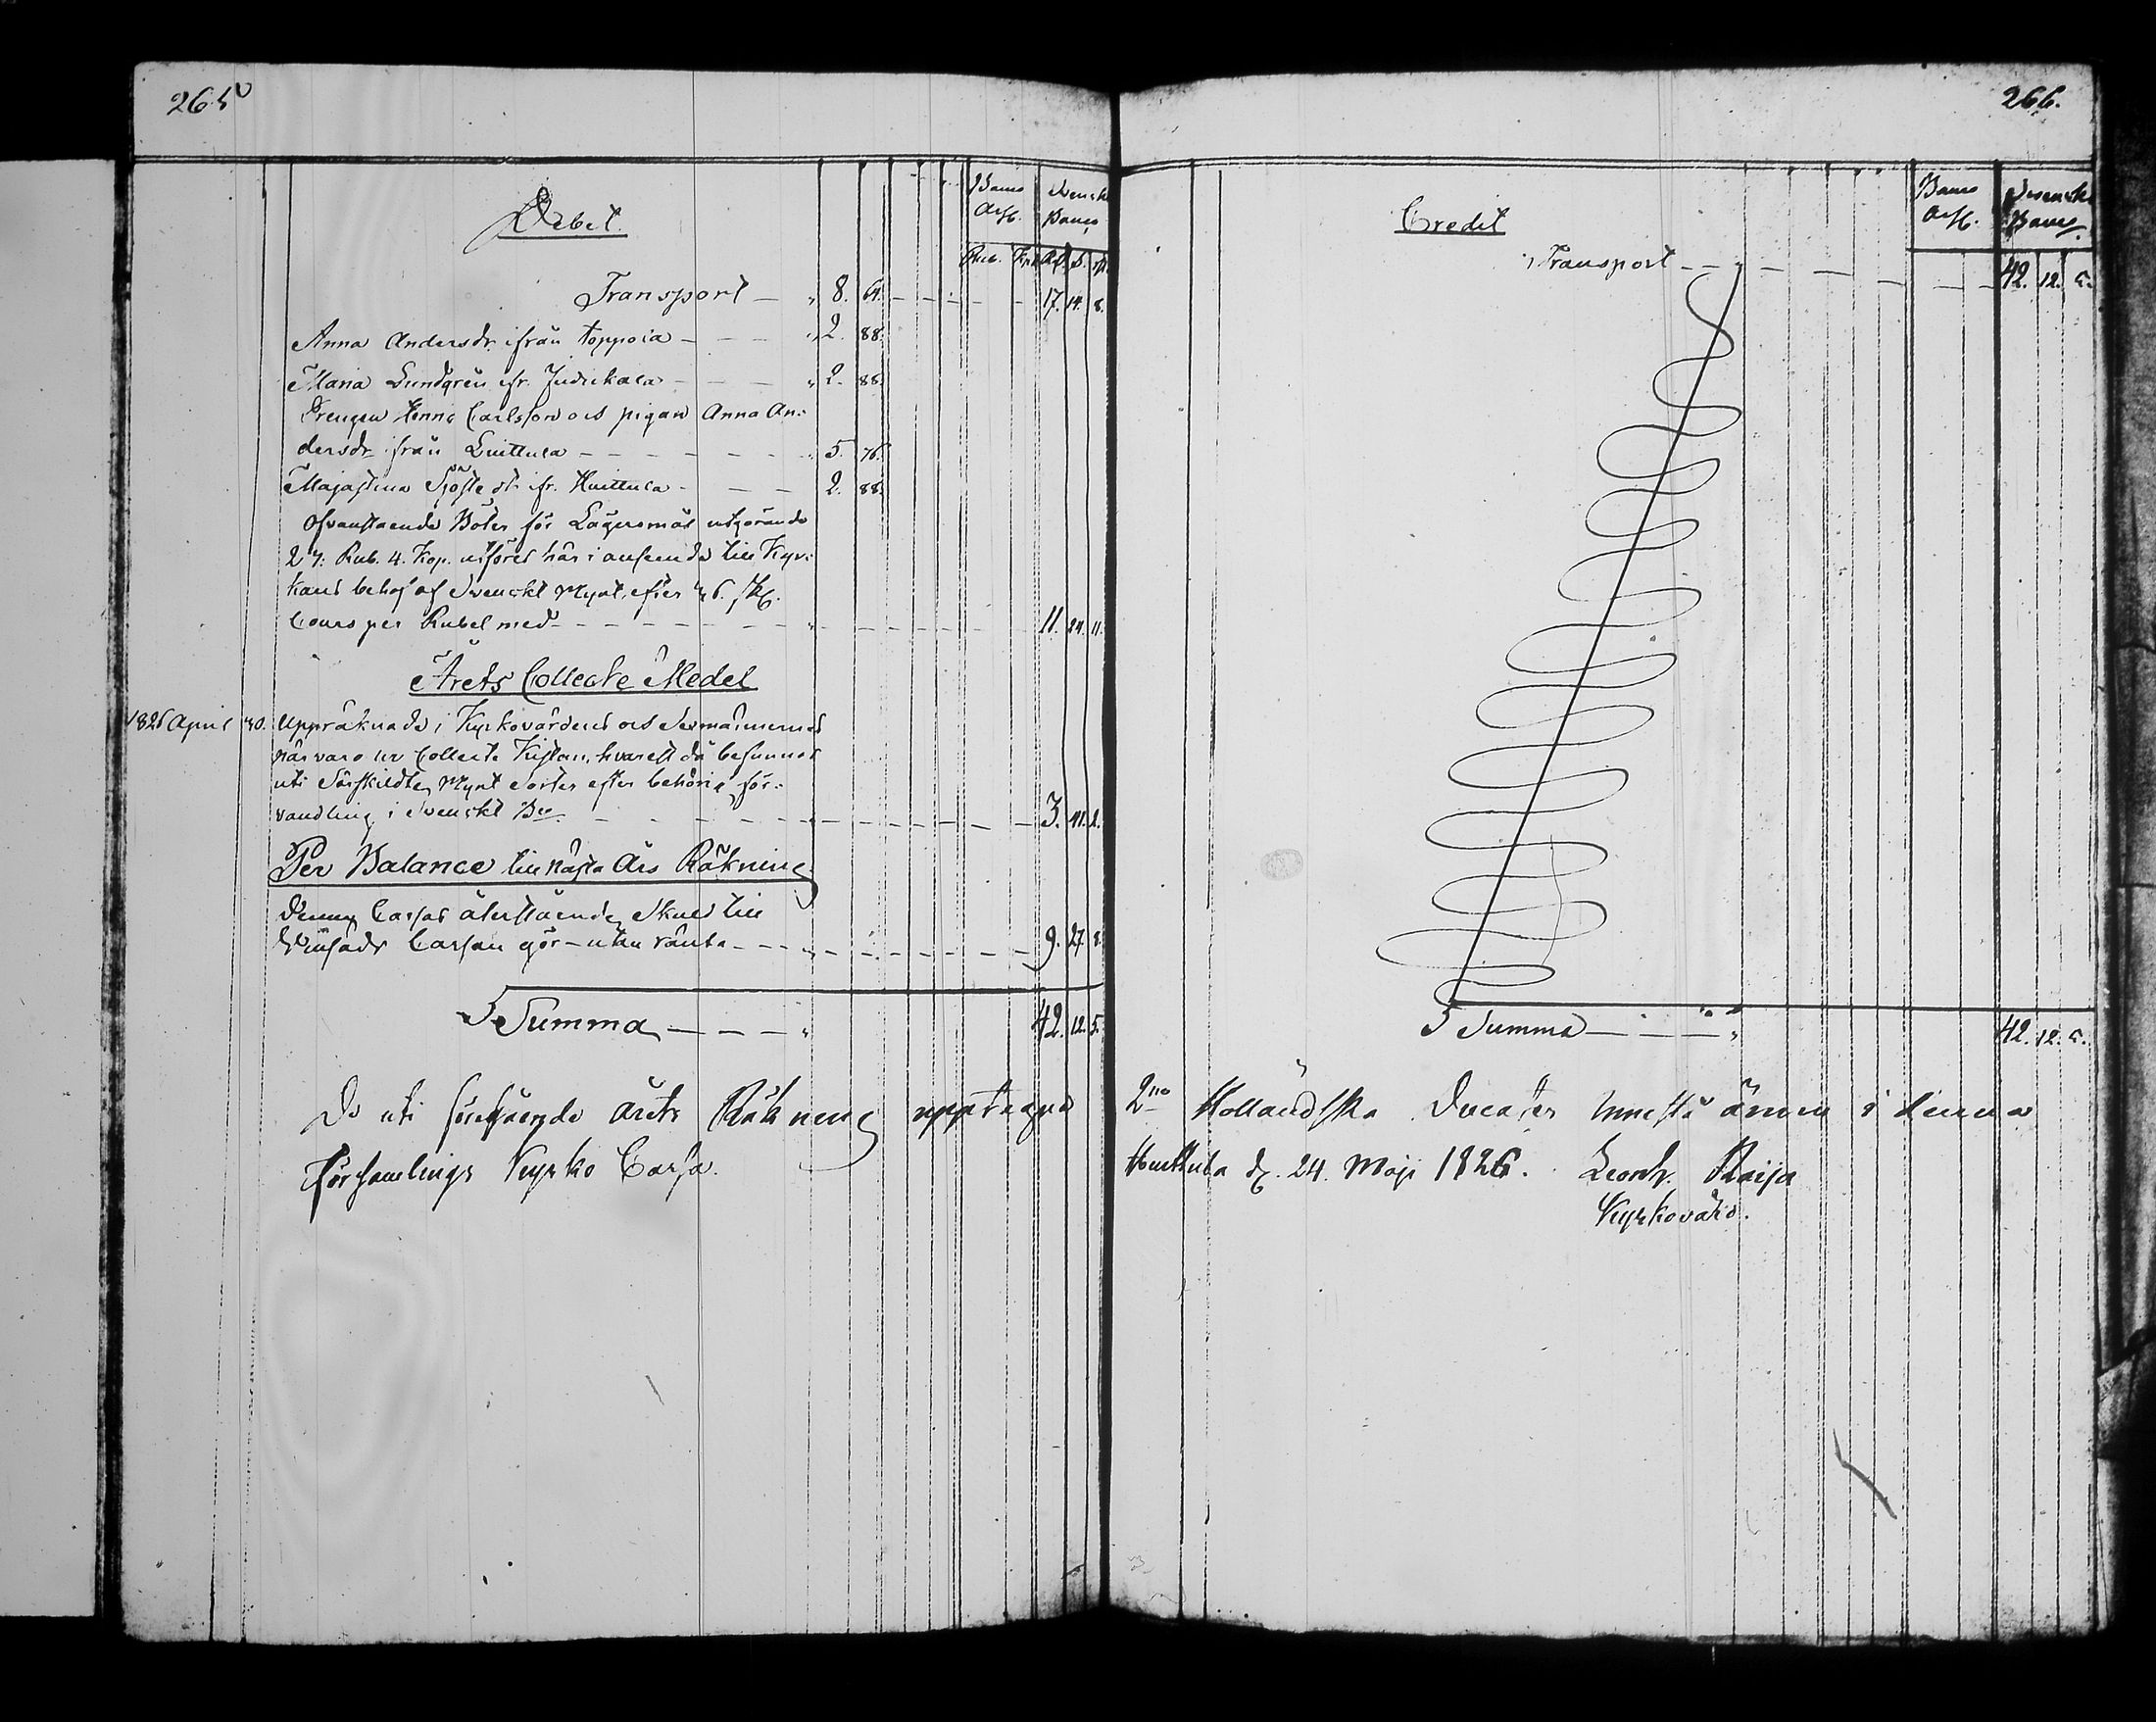 265
Debet.
Banco Ass. Svenskt Banco
Rub. Kop. Rd. S. rst.
Transport — 8. 64. 17. 14. 8.
Anna Andersdr. ifrån Toppoia — 2. 88.
Maria Lundgrén ifr. Judickala — 2. 88.
Drengen Carlsson och pigan Anna An-
dersdr. från Luttula — 5. 76.
Majastina ifr. Huittula — 2. 88.
Ofvanstaende Böter för Lägersmål utgörande
27. Rub. 4. Kop. utföres här i anseende till Kyr-
kans behof af Svenskt Mynt, efter
Cours per Rubel med — 11. 24. 11.
Årets Collecte Medel
1826 April 30. Uppräknades i Kyrkovärdens och Sexmännernes
närvaro ur Collecte Kistan, hvarest då befunnos
uti Särskildte Mynt Sorter efter behörig för-
vandling i Svenskt Bco — 3. 41. 2.
Per Balance till Nästa Års Räkning
Denna Cassas återstående Skuld till
Cassan gör — utan ränta — 9. 27. 8.
Summa — 42. 12. 5.
De uti föregående årets Räkning upptagne
Församlings Kyrko Cassa.
266.
Credit
Banco Ass. Svenskt Banco
Transport — 42. 12. 5.
Summa — 42. 12. 5.
2ne Holländska Ducater innestå ännu i denna
Huittula d. 24. Maji 1826. Leonh. Raija
Kyrkovärd.